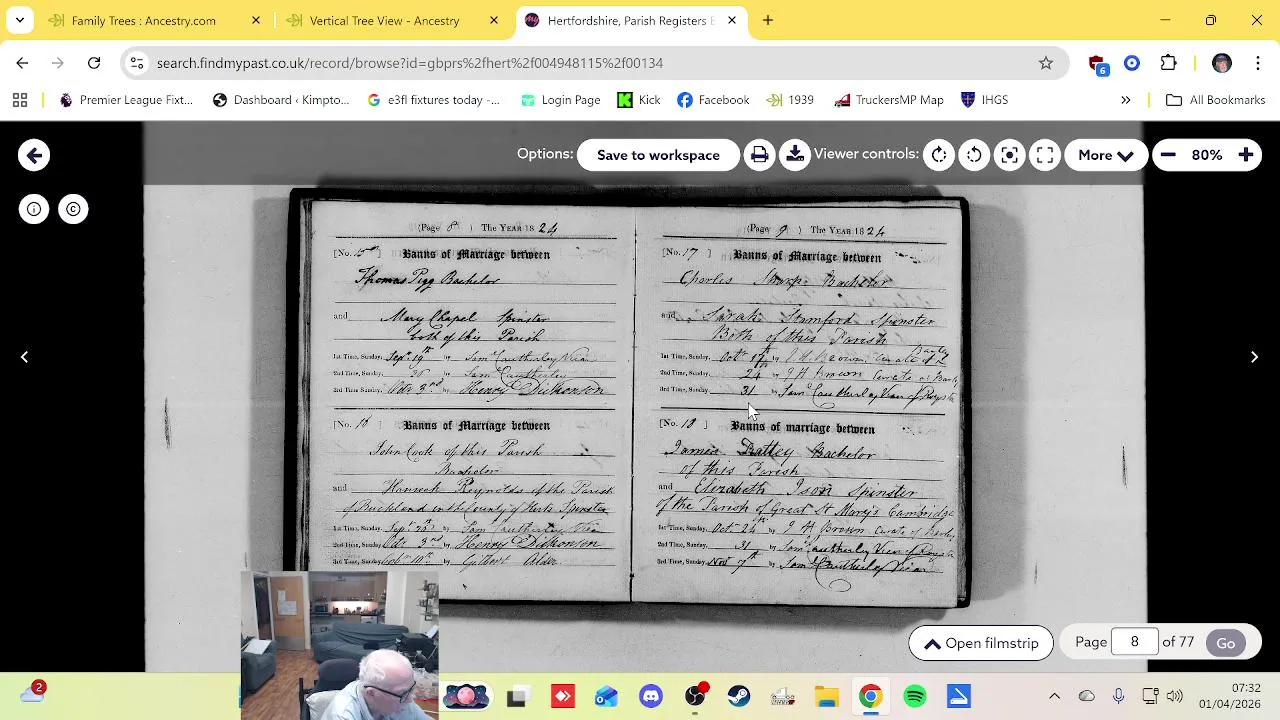 Family Trees : Ancestry.com
Vertical Tree View - Ancestry
Hertfordshire, Parish Registers B
search.findmypast.co.uk/record/browse?id=gbprs%2fhert%2f004948115%2f00134
6
Premier League Fixt...
Dashboard ‹ Kimpto...
e3fl fixtures today -...
Login Page
Kick
Facebook
1939
TruckersMP Map
IHGS
»
All Bookmarks
Options:
Save to workspace
Viewer controls:
More
80%
(Page 8 ) The YEAR 18 24
[No. 15 ] Banns of Marriage between
Thomas Pigg Bachelor
and Mary Chapel Spinster
both of this Parish
1st Time, Sunday, Sepr 19th by Saml Cautherley Vicar
2nd Time, Sunday, 26 by Saml Cautherley
3rd Time, Sunday, Octr 3rd by Henry Dickonson
[No. 16 ] Banns of Marriage between
John Cook of this Parish
Bachelor
and Hannah Reynolds of the Parish
of Buckland in the County of Herts Spinster
1st Time, Sunday, Sepr 26th by Saml Cautherley Vicar
2nd Time, Sunday, Octr 3rd by Henry Dickonson
3rd Time, Sunday, 10th by Gilbert Alder
(Page 9 ) The YEAR 18 24
[No. 17 ] Banns of Marriage between
Charles Sharp Bachelor
and Sarah Stamford Spinster
Both of this Parish
1st Time, Sunday, Octr 17th by J H Brown Curate of
2nd Time, Sunday, 24th by J H Brown Curate of
3rd Time, Sunday, 31 by Saml Cautherley Vicar of Royston
[No. 18 ] Banns of marriage between
James Bachelor
of this Parish
and Elizabeth Ison Spinster
of the Parish of Great St Mary's Cambridge
1st Time, Sunday, Oct 24th by J H Brown Curate of
2nd Time, Sunday, 31 by Saml Cautherley Vicar of Royston
3rd Time, Sunday, Nov 7th by Saml Cautherley Vicar
Open filmstrip
Page 8 of 77 Go
2
07:32
01/04/2026